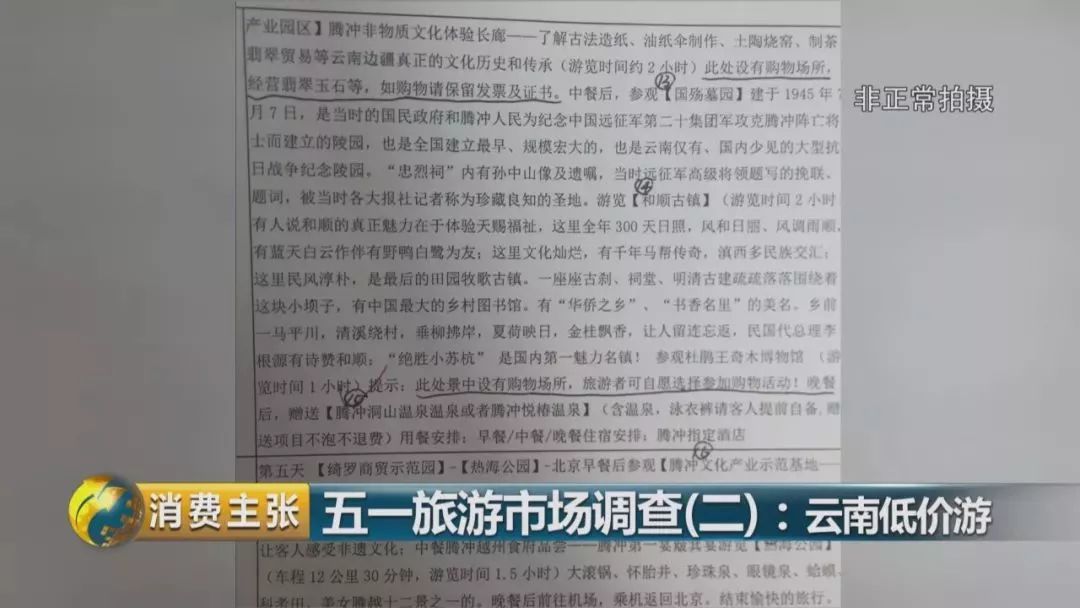 产业园区】腾冲非物质文化体验长廊——了解古法造纸、油纸伞制作、土陶烧窑、制茶
翡翠贸易等云南边疆真正的文化历史和传承（游览时间约2小时）此处设有购物场所，
经营翡翠玉石等，如购物请保留发票及证书。中餐后，参观【国殇墓园】建于1945年7
非正常拍摄
月7日，是当时的国民政府和腾冲人民为纪念中国远征军第二十集团军攻克腾冲阵亡将
士而建立的陵园，也是全国建立最早、规模宏大的，也是云南仅有、国内少见的大型抗
日战争纪念陵园。“忠烈祠”内有孙中山像及遗嘱，当时远征军高级将领题写的挽联、
题词，被当时各大报社记者称为珍藏良知的圣地。游览【和顺古镇】（游览时间2小时
有人说和顺的真正魅力在于体验天赐福祉，这里全年300天日照，风和日丽、风调雨顺，
有蓝天白云作伴有野鸭白鹭为友；这里文化灿烂，有千年马帮传奇，滇西多民族交汇；
这里民风淳朴，是最后的田园牧歌古镇。一座座古刹、祠堂、明清古建疏疏落落围绕着
这块小坝子，有中国最大的乡村图书馆。有“华侨之乡”、“书香名里”的美名。乡前
一马平川，清溪绕村，垂柳拂岸，夏荷映日，金桂飘香，让人留连忘返，民国代总理李
根源有诗赞和顺；“绝胜小苏杭” 是国内第一魅力名镇！ 参观杜鹃王奇木博物馆 （游
览时间1小时）提示：此处景中设有购物场所，旅游者可自愿选择参加购物活动！晚餐
后，赠送【腾冲洞山温泉温泉或者腾冲悦椿温泉】（含温泉，泳衣裤请客人提前自备，赠
送项目不泡不退费）用餐安排：早餐/中餐/晚餐住宿安排：腾冲指定酒店
第五天 【绮罗商贸示范园】-【热海公园】-北京早餐后参观【腾冲文化产业示范基地—
消费主张 五一旅游市场调查(二)：云南低价游
让客人感受非遗文化；中餐腾冲越州食府品尝——腾冲第一宴 游览【热海公园】
（车程12公里30分钟，游览时间1.5小时）大滚锅、怀胎井、珍珠泉、眼镜泉、蛤蟆
美女腾越十二景之一的。晚餐后前往机场，乘机返回北京。结束愉快的旅行。